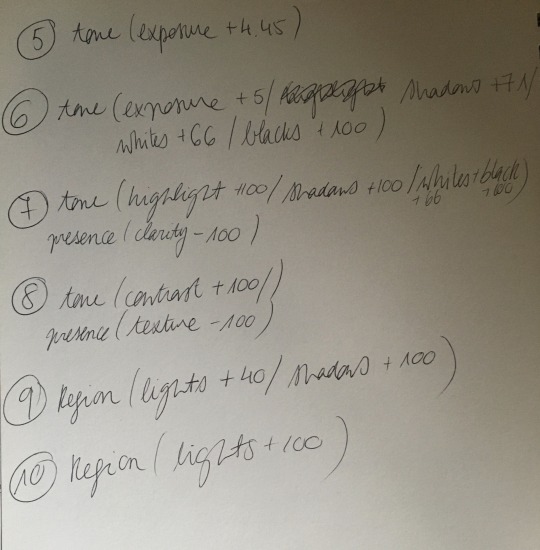 5 tone (exposure +4.45)
6 tone (exposure +5/ shadows +71/
whites +66 / blacks +100)
7 tone (highlight +100/ shadows +100 /whites+black)
+66 +100
presence (clarity -100)
8 tone (contrast +100/)
presence (texture -100)
9 Region (lights +40/ shadows +100)
10 Region (lights +100)